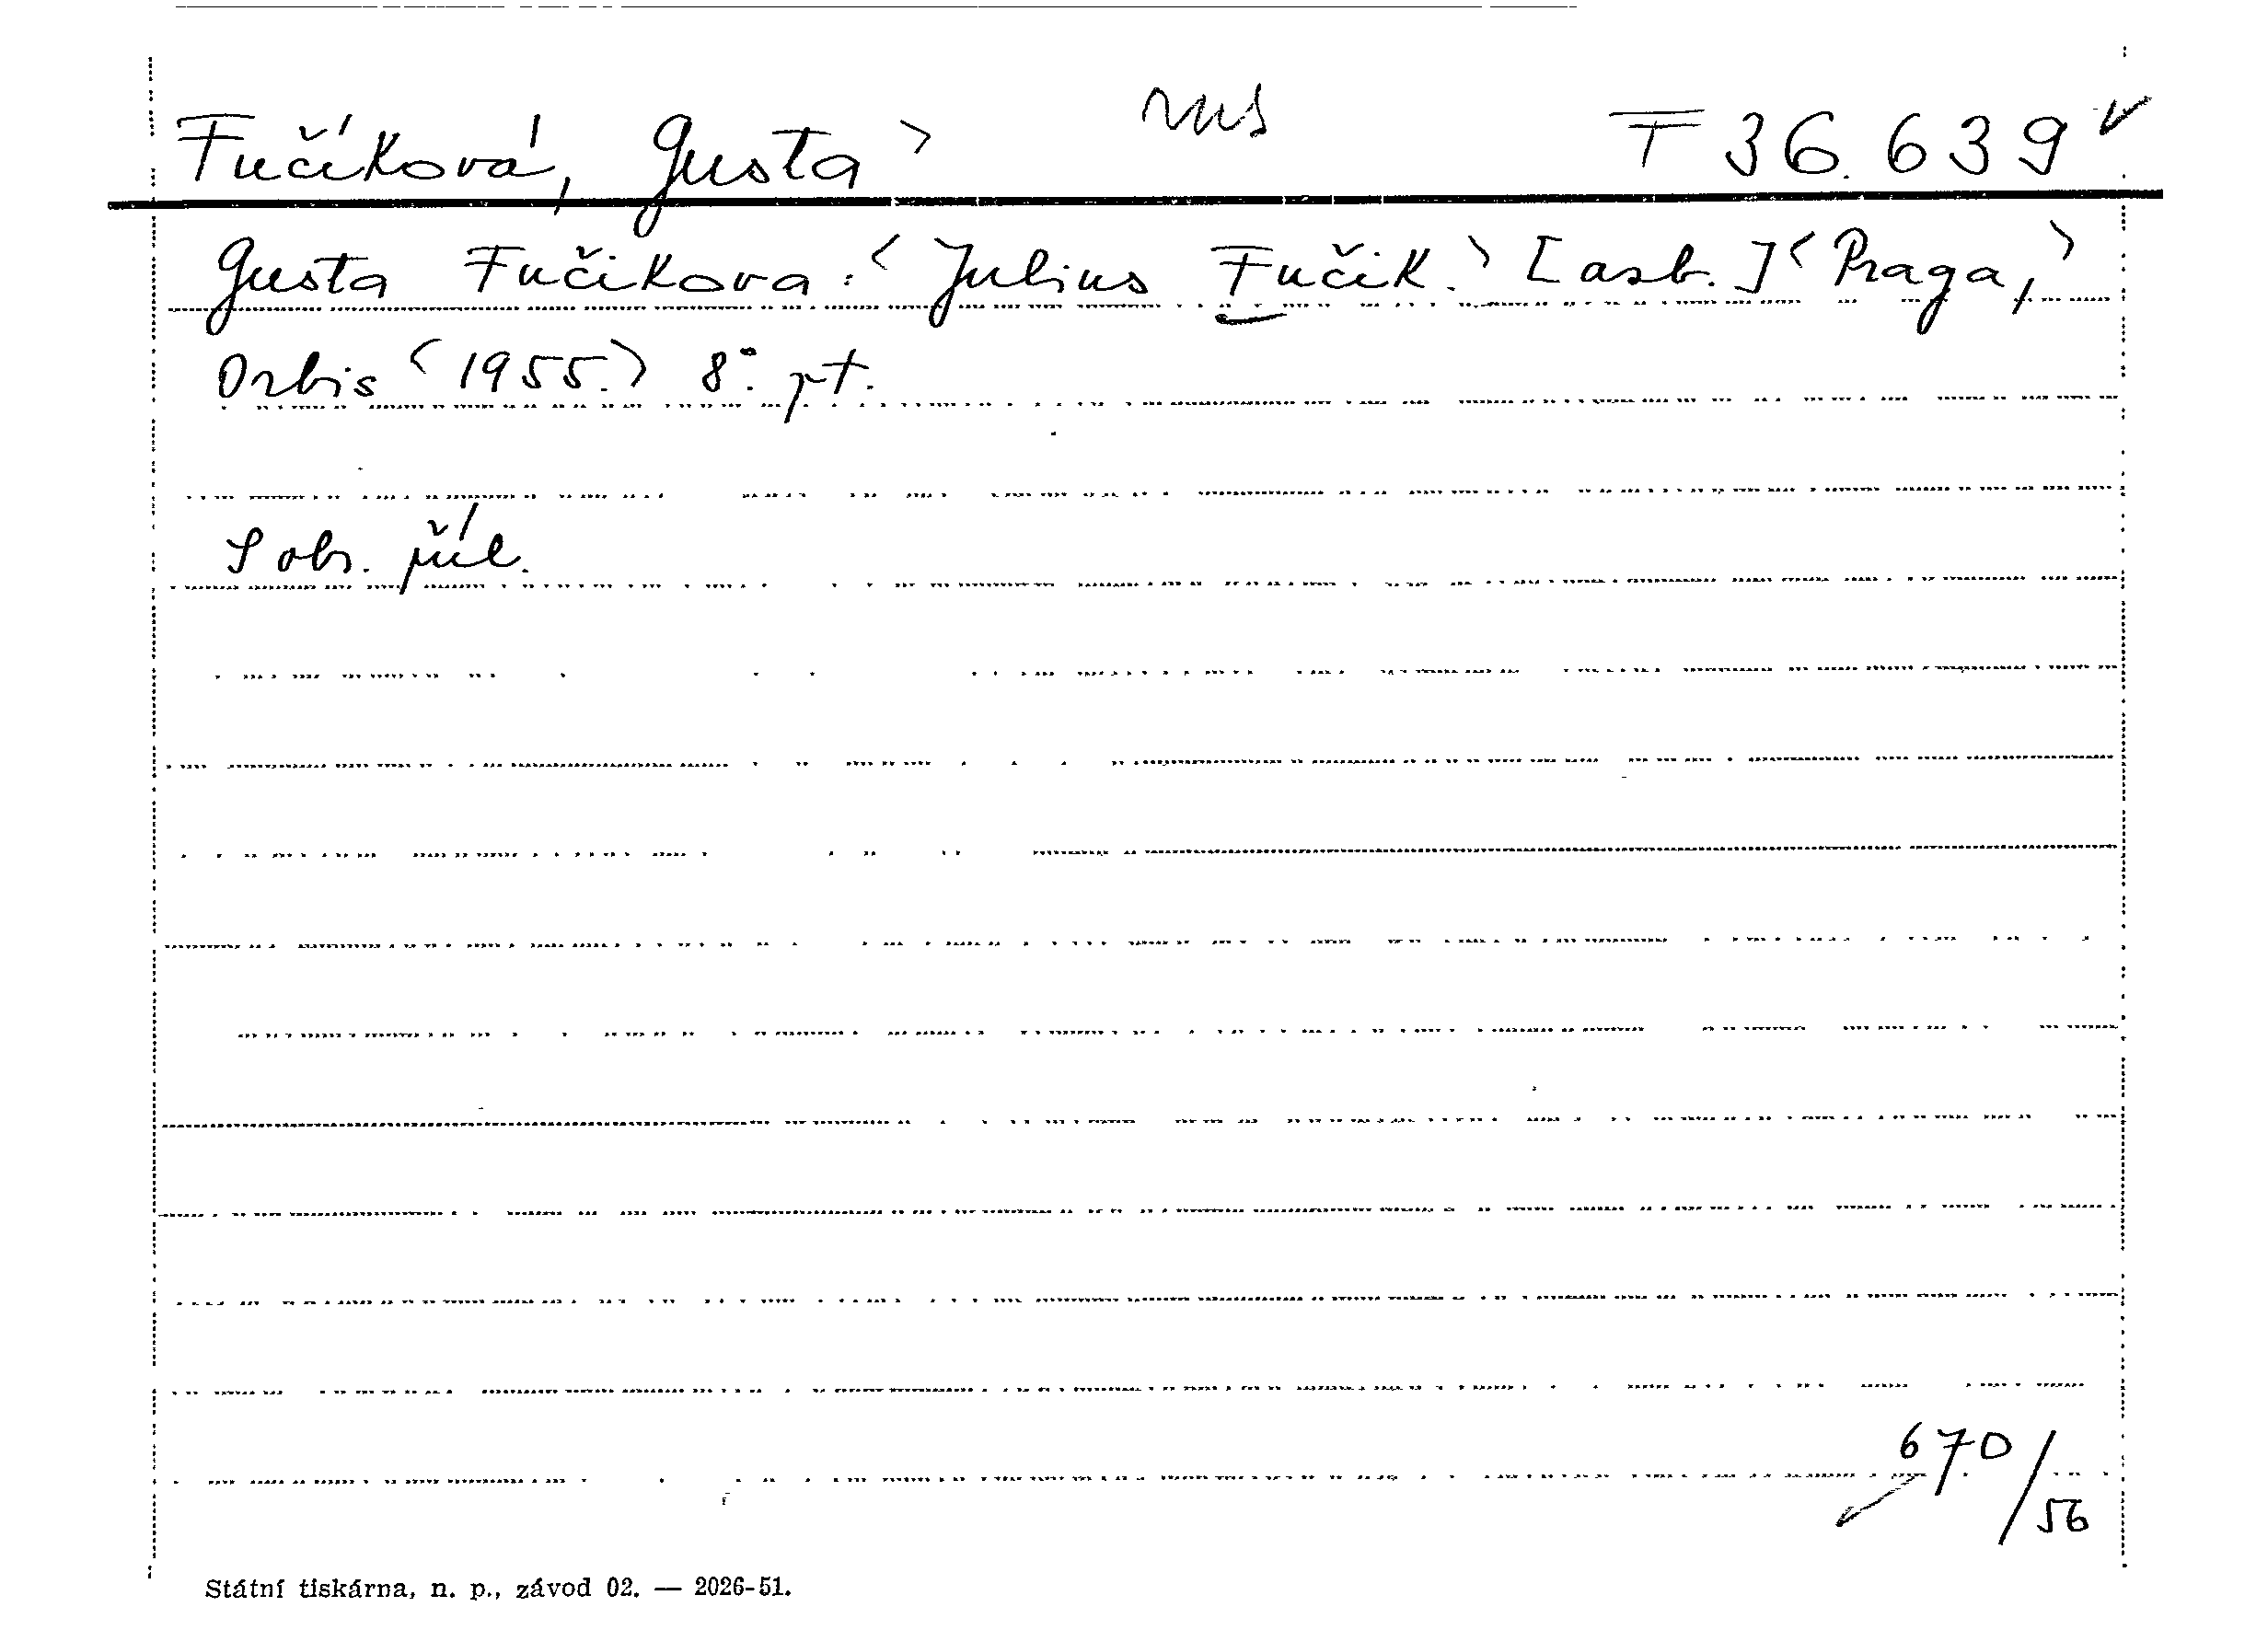 Fučíková, Gusta > rus T 36.639
Gusta Fučikova: <Julius Fučik.> [asb.] <Praga,>
Orbis <1955.> 8°. pt.
S obr. příl.
670/56
Státní tiskárna, n. p., závod 02. — 2026-51.